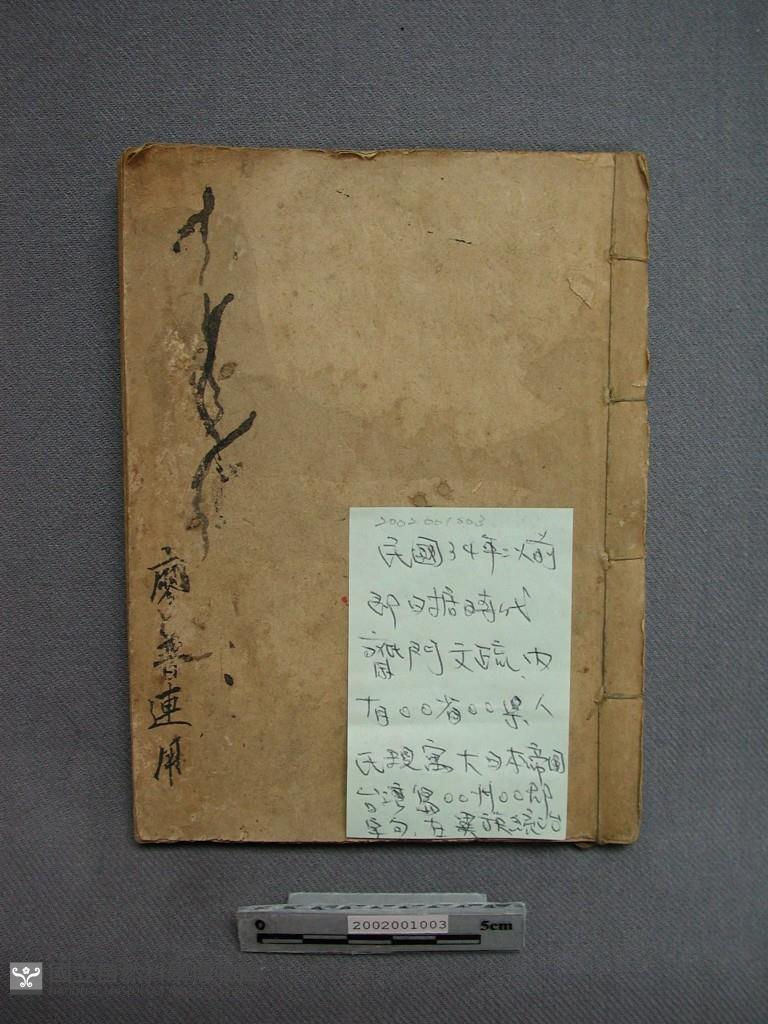 廖普連用
2002001003
民國34年以前
即日据時代
齋門文疏內
有○○省○○県人
民現寓大日本帝國
台灣島○○州○○郡
字句,在異族統治
0
2002001003
5cm